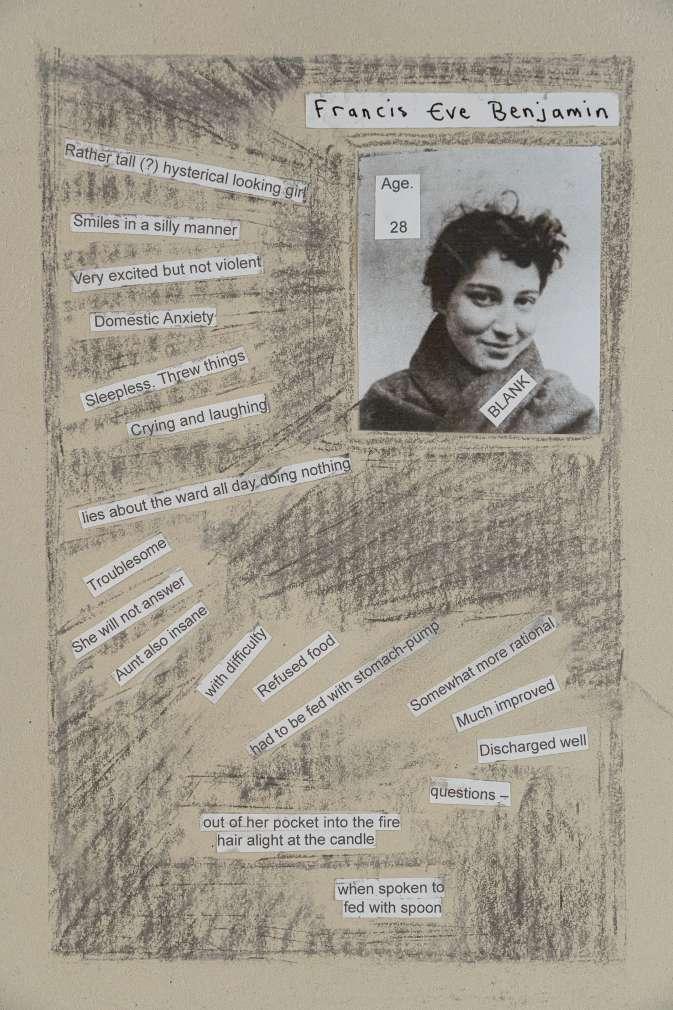 Francis Eve Benjamin
Rather tall (?) hysterical looking girl
Age.
28
Smiles in a silly manner
Very excited but not violent
Domestic Anxiety
Sleepless. Threw things
BLANK
Crying and laughing
lies about the ward all day doing nothing
Troublesome
She will not answer
Aunt also insane
with difficulty
Refused food
had to be fed with stomach-pump
Somewhat more rational
Much improved
Discharged well
questions –
out of her pocket into the fire
hair alight at the candle
when spoken to
fed with spoon